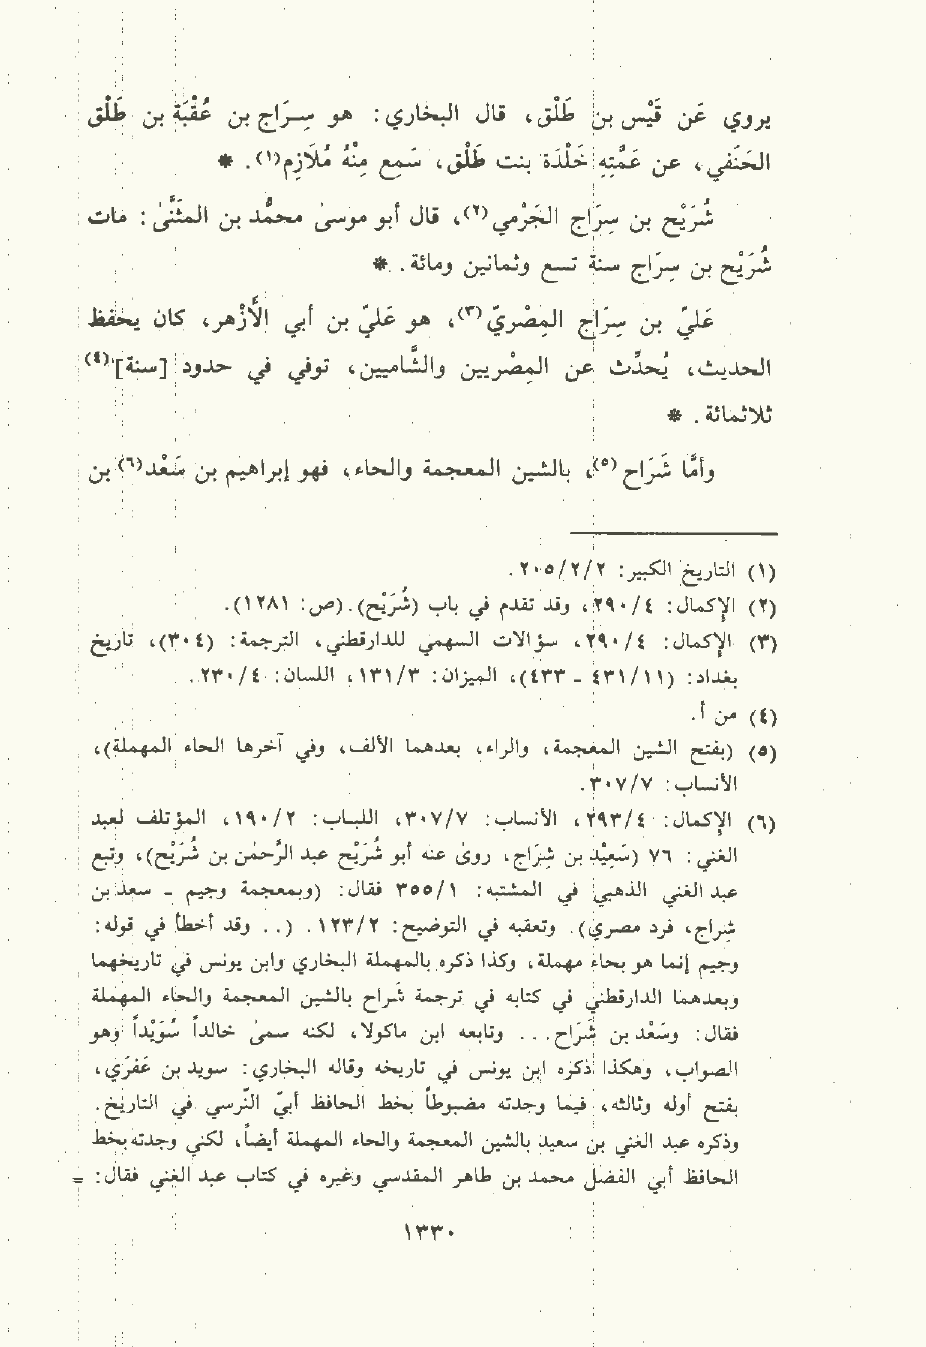 يروي عَن قَيْس بن طَلْق، قال البخاري: هو سِـرَاج بن عُقْبَة بن طَلْق
الحَنَفي، عن عَمَّتِهِ خَلْدَة بنت طَلْق، سَمِع مِنْهُ مُلَازِم(١). *
شُرَيْح بن سِرَاج الجَرْمي(٢)، قال أبو موسىٰ محمَّد بن المثَنَّىٰ: مات
شُرَيْح بن سِرَاج سنة تسع وثمانين ومائة. *
عَليّ بن سِرَاج المِصْريّ(٣)، هو عَليّ بن أبي الأَزْهر، كان يحفظ
الحديث، يُحَدِّث عن المِصْريين والشَّاميين، توفي في حدود [سنة](٤)
ثلاثمائة. *
وأمَّا شَرَاح(٥)، بالشين المعجمة والحاء، فهو إبراهيم بن سَعْد(٦) بن
(١) التاريخ الكبير: ٢٠٥/٢/٢.
(٢) الإكمال: ٢٩٠/٤، وقد تقدم في باب (شُرَيْح).(ص: ١٢٨١).
(٣) الإكمال: ٢٩٠/٤، سؤالات السهمي للدارقطني، الترجمة: (٣٠٤)، تاريخ
بغداد: (٤٣١/١١ - ٤٣٣)، الميزان: ١٣١/٣، اللسان: ٢٣٠/٤.
(٤) من أ.
(٥) (بفتح الشين المعجمة، والراء، بعدهما الألف، وفي آخرها الحاء المهملة)،
الأنساب: ٣٠٧/٧.
(٦) الإكمال: ٢٩٣/٤، الأنساب: ٣٠٧/٧، اللبـاب: ١٩٠/٢، المؤتلف لعبد
الغني: ٧٦ (سَعِيْد بن شِرَاج، روىٰ عنه أبو شُرَيْح عبد الرَّحمٰن بن شُرَيْح)، وتبع
عبد الغني الذهبي في المشتبه: ٣٥٥/١ فقال: (وبمعجمة وجيم - سعد بن
شِراج، فرد مصري). وتعقبه في التوضيح: ١٢٣/٢. (.. وقد أخطأ في قوله:
وجيم إنما هو بحاء مهملة، وكذا ذكره بالمهملة البخاري وابن يونس في تاريخهما
وبعدهما الدارقطني في كتابه في ترجمة شَراح بالشين المعجمة والحاء المهملة
فقال: وسَعْد بن شَرَاح... وتابعه ابن ماكولا، لكنه سمىٰ خالداً سُوَيْداً وهو
الصواب، وهكذا ذكره ابن يونس في تاريخه وقاله البخاري: سويد بن عَفَري،
بفتح أوله وثالثه، فيما وجدته مضبوطاً بخط الحافظ أبيّ النَّرسي في التاريخ.
وذكره عبد الغني بن سعيد بالشين المعجمة والحاء المهملة أيضاً، لكني وجدته بخط
الحافظ أبي الفضل محمد بن طاهر المقدسي وغيره في كتاب عبد الغني فقال: =
١٣٣٠